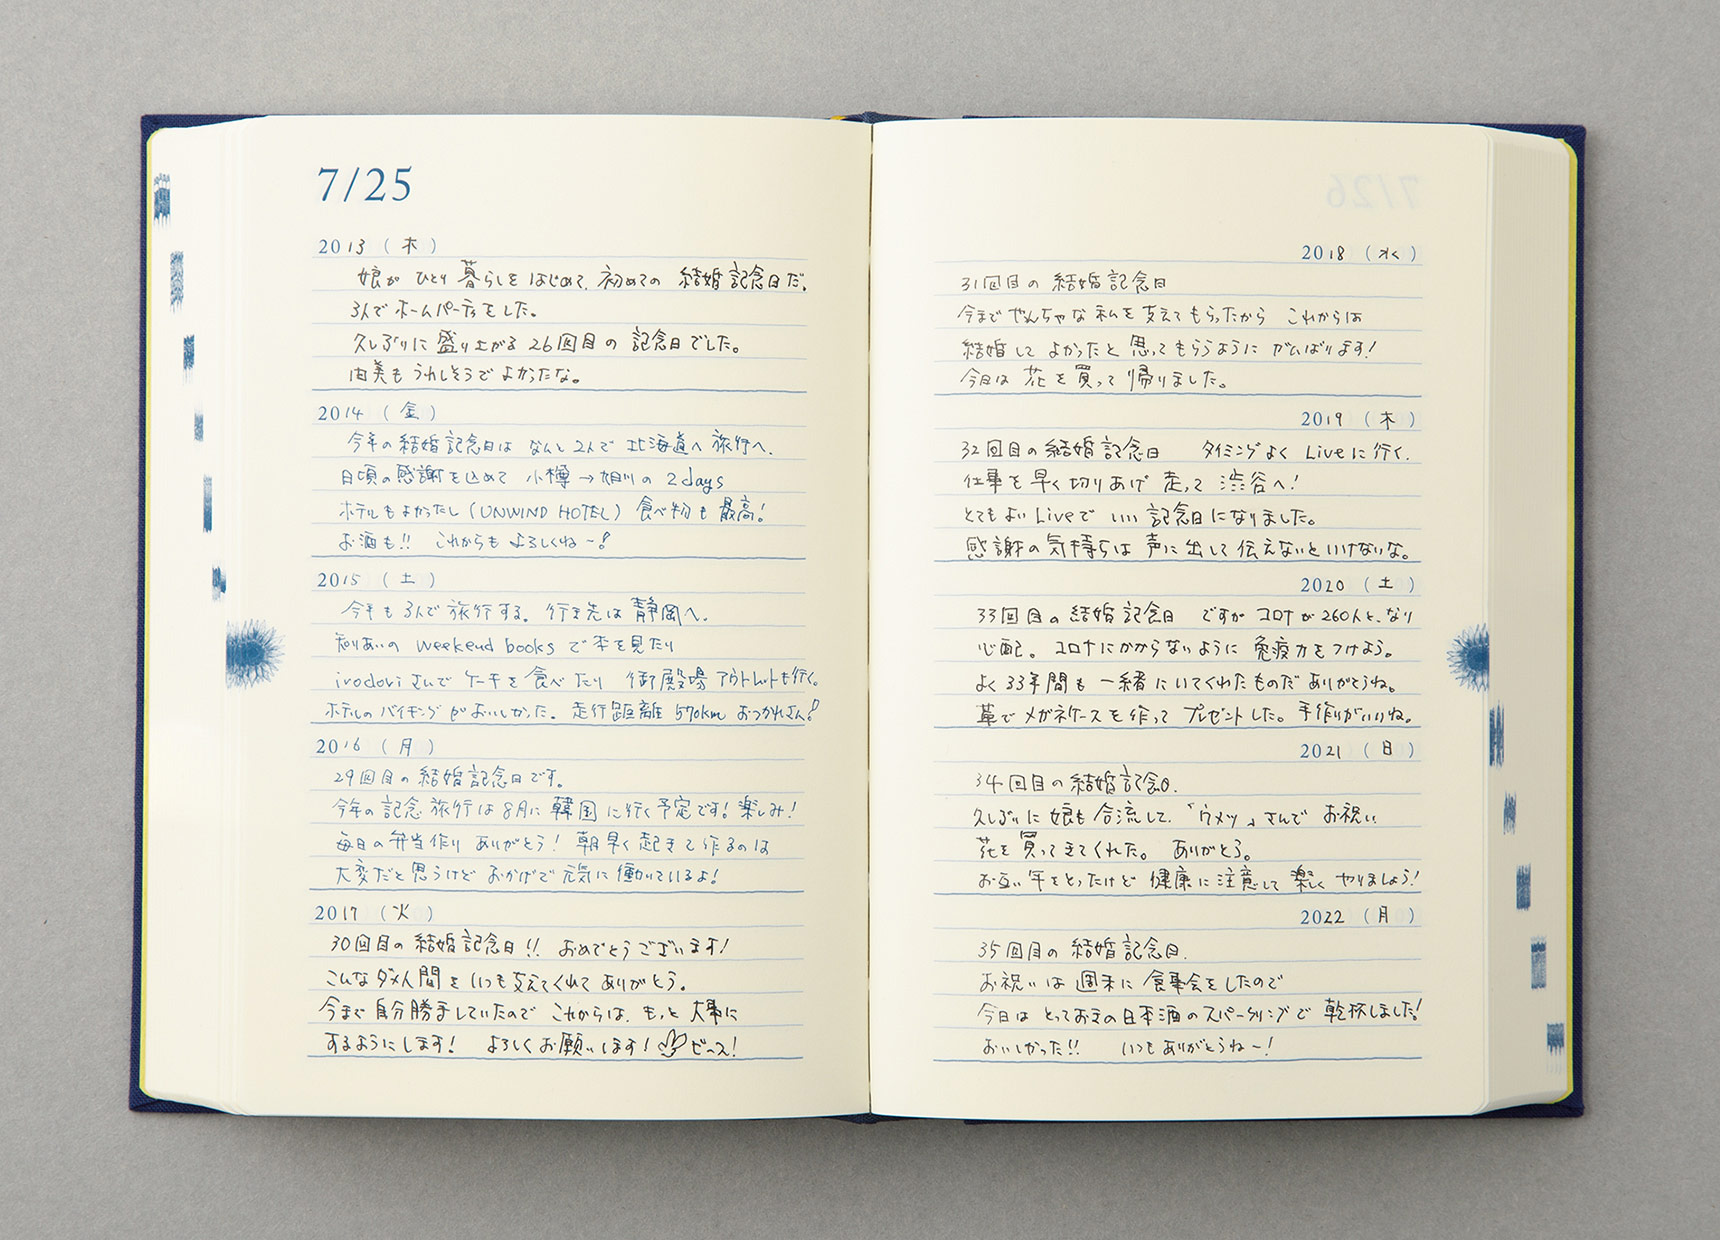 7/25
2013 (木)
娘が ひとり 暮らしを はじめて、初めての 結婚記念日だ。
3人で ホームパーティをした。
久しぶりに 盛り上がる 26回目の 記念日でした。
由美も うれしそうで よかったな。
2014 (金)
今年の 結婚記念日は なんと 2人で 北海道へ 旅行へ。
日頃の感謝を込めて 小樽→旭川の 2days
ホテルもよかったし (UNWIND HOTEL) 食べ物も 最高!
お酒も!! これからも よろしくねー!
2015 (土)
今年も 3人で 旅行する。行き先は 静岡へ。
知りあいの weekend books で 本を見たり
irodori さんで ケーキを 食べたり 御殿場 アウトレットも行く。
ホテルの バイキングがおいしかった。走行距離 570km おつかれさん!
2016 (月)
29回目の 結婚記念日です。
今年の 記念旅行は 8月に 韓国に行く予定です!楽しみ!
毎日の 弁当作り ありがとう! 朝早く起きて 作るのは
大変だと 思うけど おかげで 元気に 働いているよ!
2017 (火)
30回目の 結婚記念日!! おめでとうございます!
こんな ダメ人間を いつも支えてくれて ありがとう。
今まで 自分勝手していたので これからは、もっと 大事に
するようにします! よろしくお願いします! ピース!
7/26
2018 (水)
31回目の 結婚記念日
今まで やんちゃな 私を 支えて もらったから これからは
結婚して よかったと 思って もらうように がんばります!
今日は 花を買って 帰りました。
2019 (木)
32回目の 結婚記念日 タイミングよく Liveに行く。
仕事を 早く切りあげ 走って 渋谷へ!
とてもよいLiveで いい 記念日になりました。
感謝の気持ちは 声に出して 伝えないといけないな。
2020 (土)
33回目の 結婚記念日 ですが コロナが 260人と、なり
心配。コロナにかからないように 免疫力をつけよう。
よく 33年間も 一緒に いてくれたものだ ありがとうね。
革で メガネケースを作って プレゼントした。手作りがいいね。
2021 (日)
34回目の 結婚記念日.
久しぶりに 娘も 合流して、「ウメツ」さんで お祝い
花を買ってきてくれた。 ありがとう。
お互い 年をとったけど 健康に注意して 楽しく やりましょう!
2022 (月)
35回目の 結婚記念日.
お祝いは 週末に 食事会をしたので
今日は とっておきの日本酒のスパークリングで 乾杯しました!
おいしかった!! いつもありがとうねー!